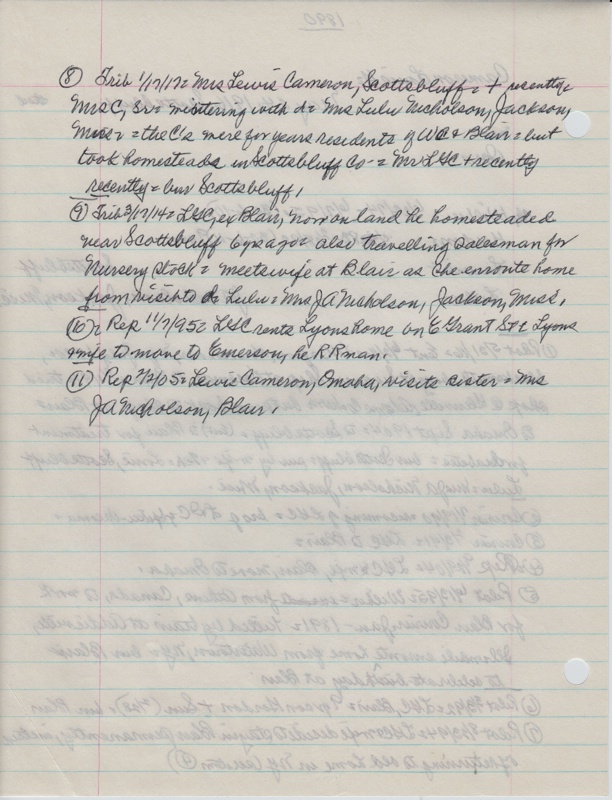 1890
⑧ Trib 1/17/17 = Mrs Lewis Cameron, Scottsbluff = + recently =
Mrs C, Sr = wintering with d = Mrs Lulu Nicholson, Jackson,
Miss = the C's were for years residents of WC & Blair = but
took homesteads in Scottsbluff Co = Mr LSC + recently
recently = bur Scottsbluff.
⑨ Trib 3/12/14 = LSC, ex Blair, now on land he homesteaded
near Scottsbluff 6 yrs ago = also travelling salesman for
Nursery Stock = meets wife at Blair as she enroute home
from visit to d Lulu = Mrs JA Nicholson, Jackson, Miss.
⑩ = Rep 11/7/95 = LSC rents Lyons home on E Grant St = Lyons
& wife to move to Emerson, he RR man.
⑪ Rep 2/2/05 = Lewis Cameron, Omaha, visits sister = Mrs
JA Nicholson, Blair.